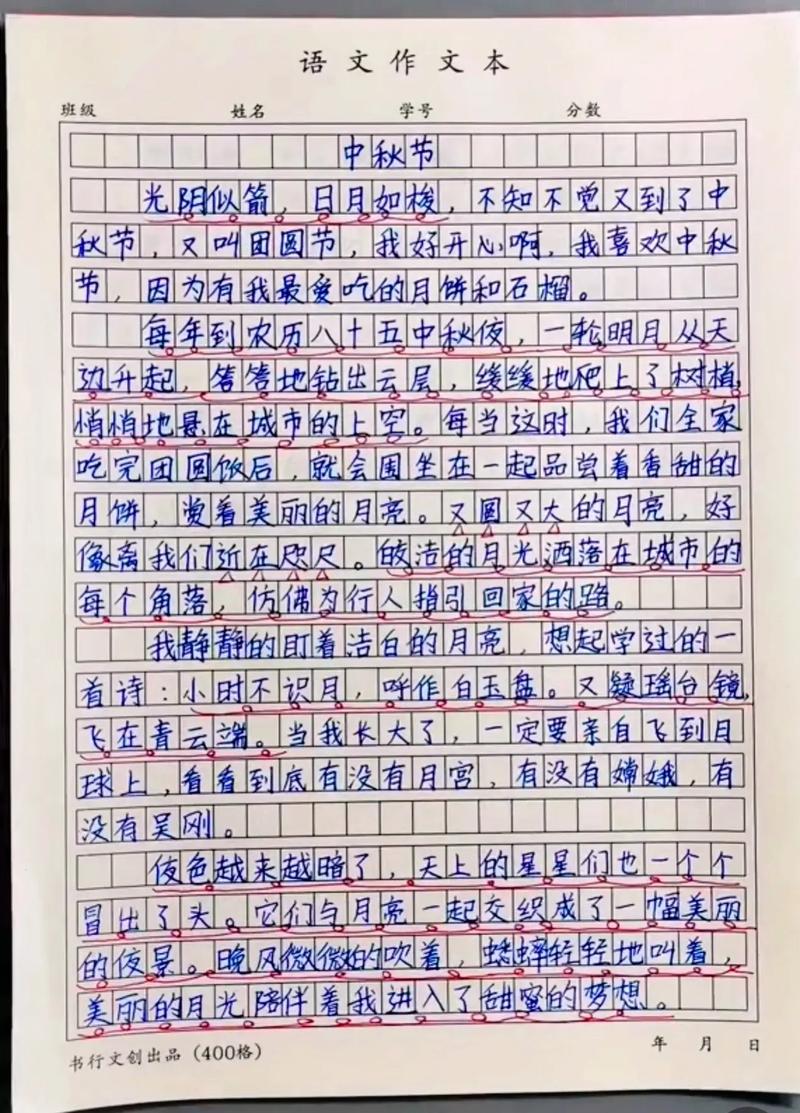 语文作文本
班级 姓名 学号 分数
中秋节
光阴似箭，日月如梭，不知不觉又到了中
秋节，又叫团圆节，我好开心啊，我喜欢中秋
节，因为有我最爱吃的月饼和石榴。
每年到农历八十五中秋夜，一轮明月从天
边升起，答答地钻出云层，缓缓地爬上了树梢，
悄悄地悬在城市的上空。每当这时，我们全家
吃完团圆饭后，就会围坐在一起品尝着香甜的
月饼，赏着美丽的月亮。又圆又大的月亮，好
像离我们近在咫尺。皎洁的月光洒落在城市的
每个角落，仿佛为行人指引回家的路。
我静静的盯着洁白的月亮，想起学过的一
首诗：小时不识月，呼作白玉盘。又疑瑶台镜，
飞在青云端。当我长大了，一定要亲自飞到月
球上，看看到底有没有月宫，有没有嫦娥，有
没有吴刚。
夜色越来越暗了，天上的星星们也一个个
冒出了头。它们与月亮一起交织成了一幅美丽
的夜景。晚风微微的吹着，蟋蟀轻轻地叫着，
美丽的月光陪伴着我进入了甜蜜的梦想。
书行文创出品（400格） 年 月 日